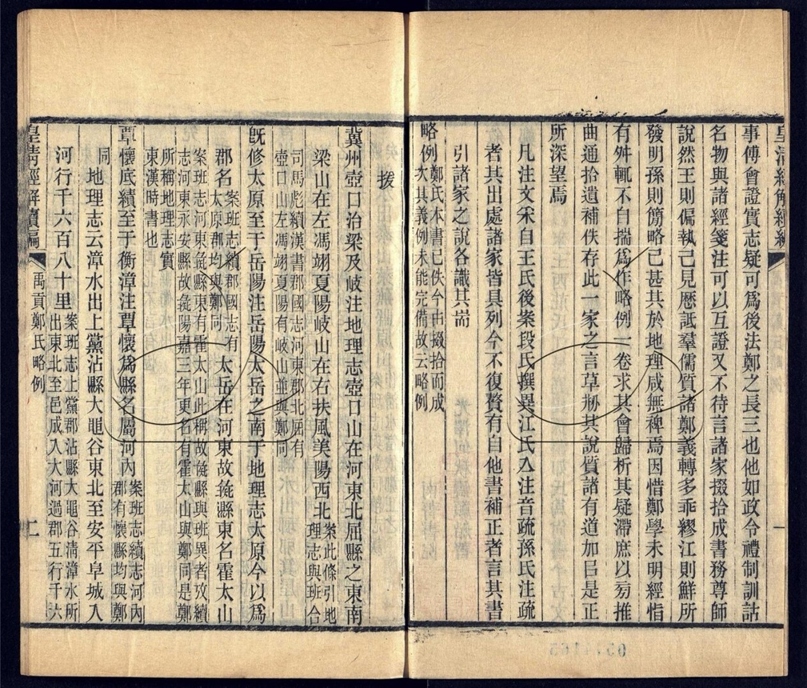 皇清經解續編
事傅會證實志疑可爲後法鄭之長三也他如政令禮制訓詁
名物與諸經箋注可以互證又不待言諸家掇拾成書務尊師
說然王則偏執己見歷詆羣儒質諸鄭義轉多乖繆江則鮮所
發明孫則簡略已甚其於地理咸無裨焉因惜鄭學未明經恉
有舛輒不自揣爲作略例一卷求其會歸析其疑滯庶以旁推
曲通拾遺補佚存此一家之言草刱其說質諸有道加㠯是正
所深望焉
凡注文宋自王氏後案段氏撰異江氏亼注音疏孫氏注疏
者其出處諸家皆具列今不復贅有自他書補正者言其書
引諸家之說各識其耑
略例
鄭氏本書已佚今由掇拾而成
次其義例未能完備故云略例
揆
冀州壺口治梁及岐注地理志壺口山在河東北屈縣之東南
梁山在左馮翊夏陽岐山在右扶風美陽西北
案此條引地
理志與班合
司馬彪續漢書郡國志河東郡北屈有
壺口山左馮翊夏陽有岐山並與鄭同
旣修太原至于岳陽注岳陽太岳之南于地理志太原今以爲
郡名
案班志續郡國志有
太原郡均與鄭同
太岳在河東故彘縣東名霍太山
案班志河東彘縣東有霍太山此稱故彘縣與班異者攷續
志河東永安縣故彘陽嘉三年更名有霍太山與鄭同是鄭
所稱地理志實
東漢時書也
覃懷底績至于衡漳注覃懷爲縣名屬河內
案班志續志河內
郡有懷縣均與鄭
同
地理志云漳水出上黨沾縣大黽谷東北至安平阜城入
河行千六百八十里
案班志上黨郡沾縣大黽谷淸漳水所
出東北至邑成入大河過郡五行千六
皇淸經解續編
禹貢鄭氏略例
二